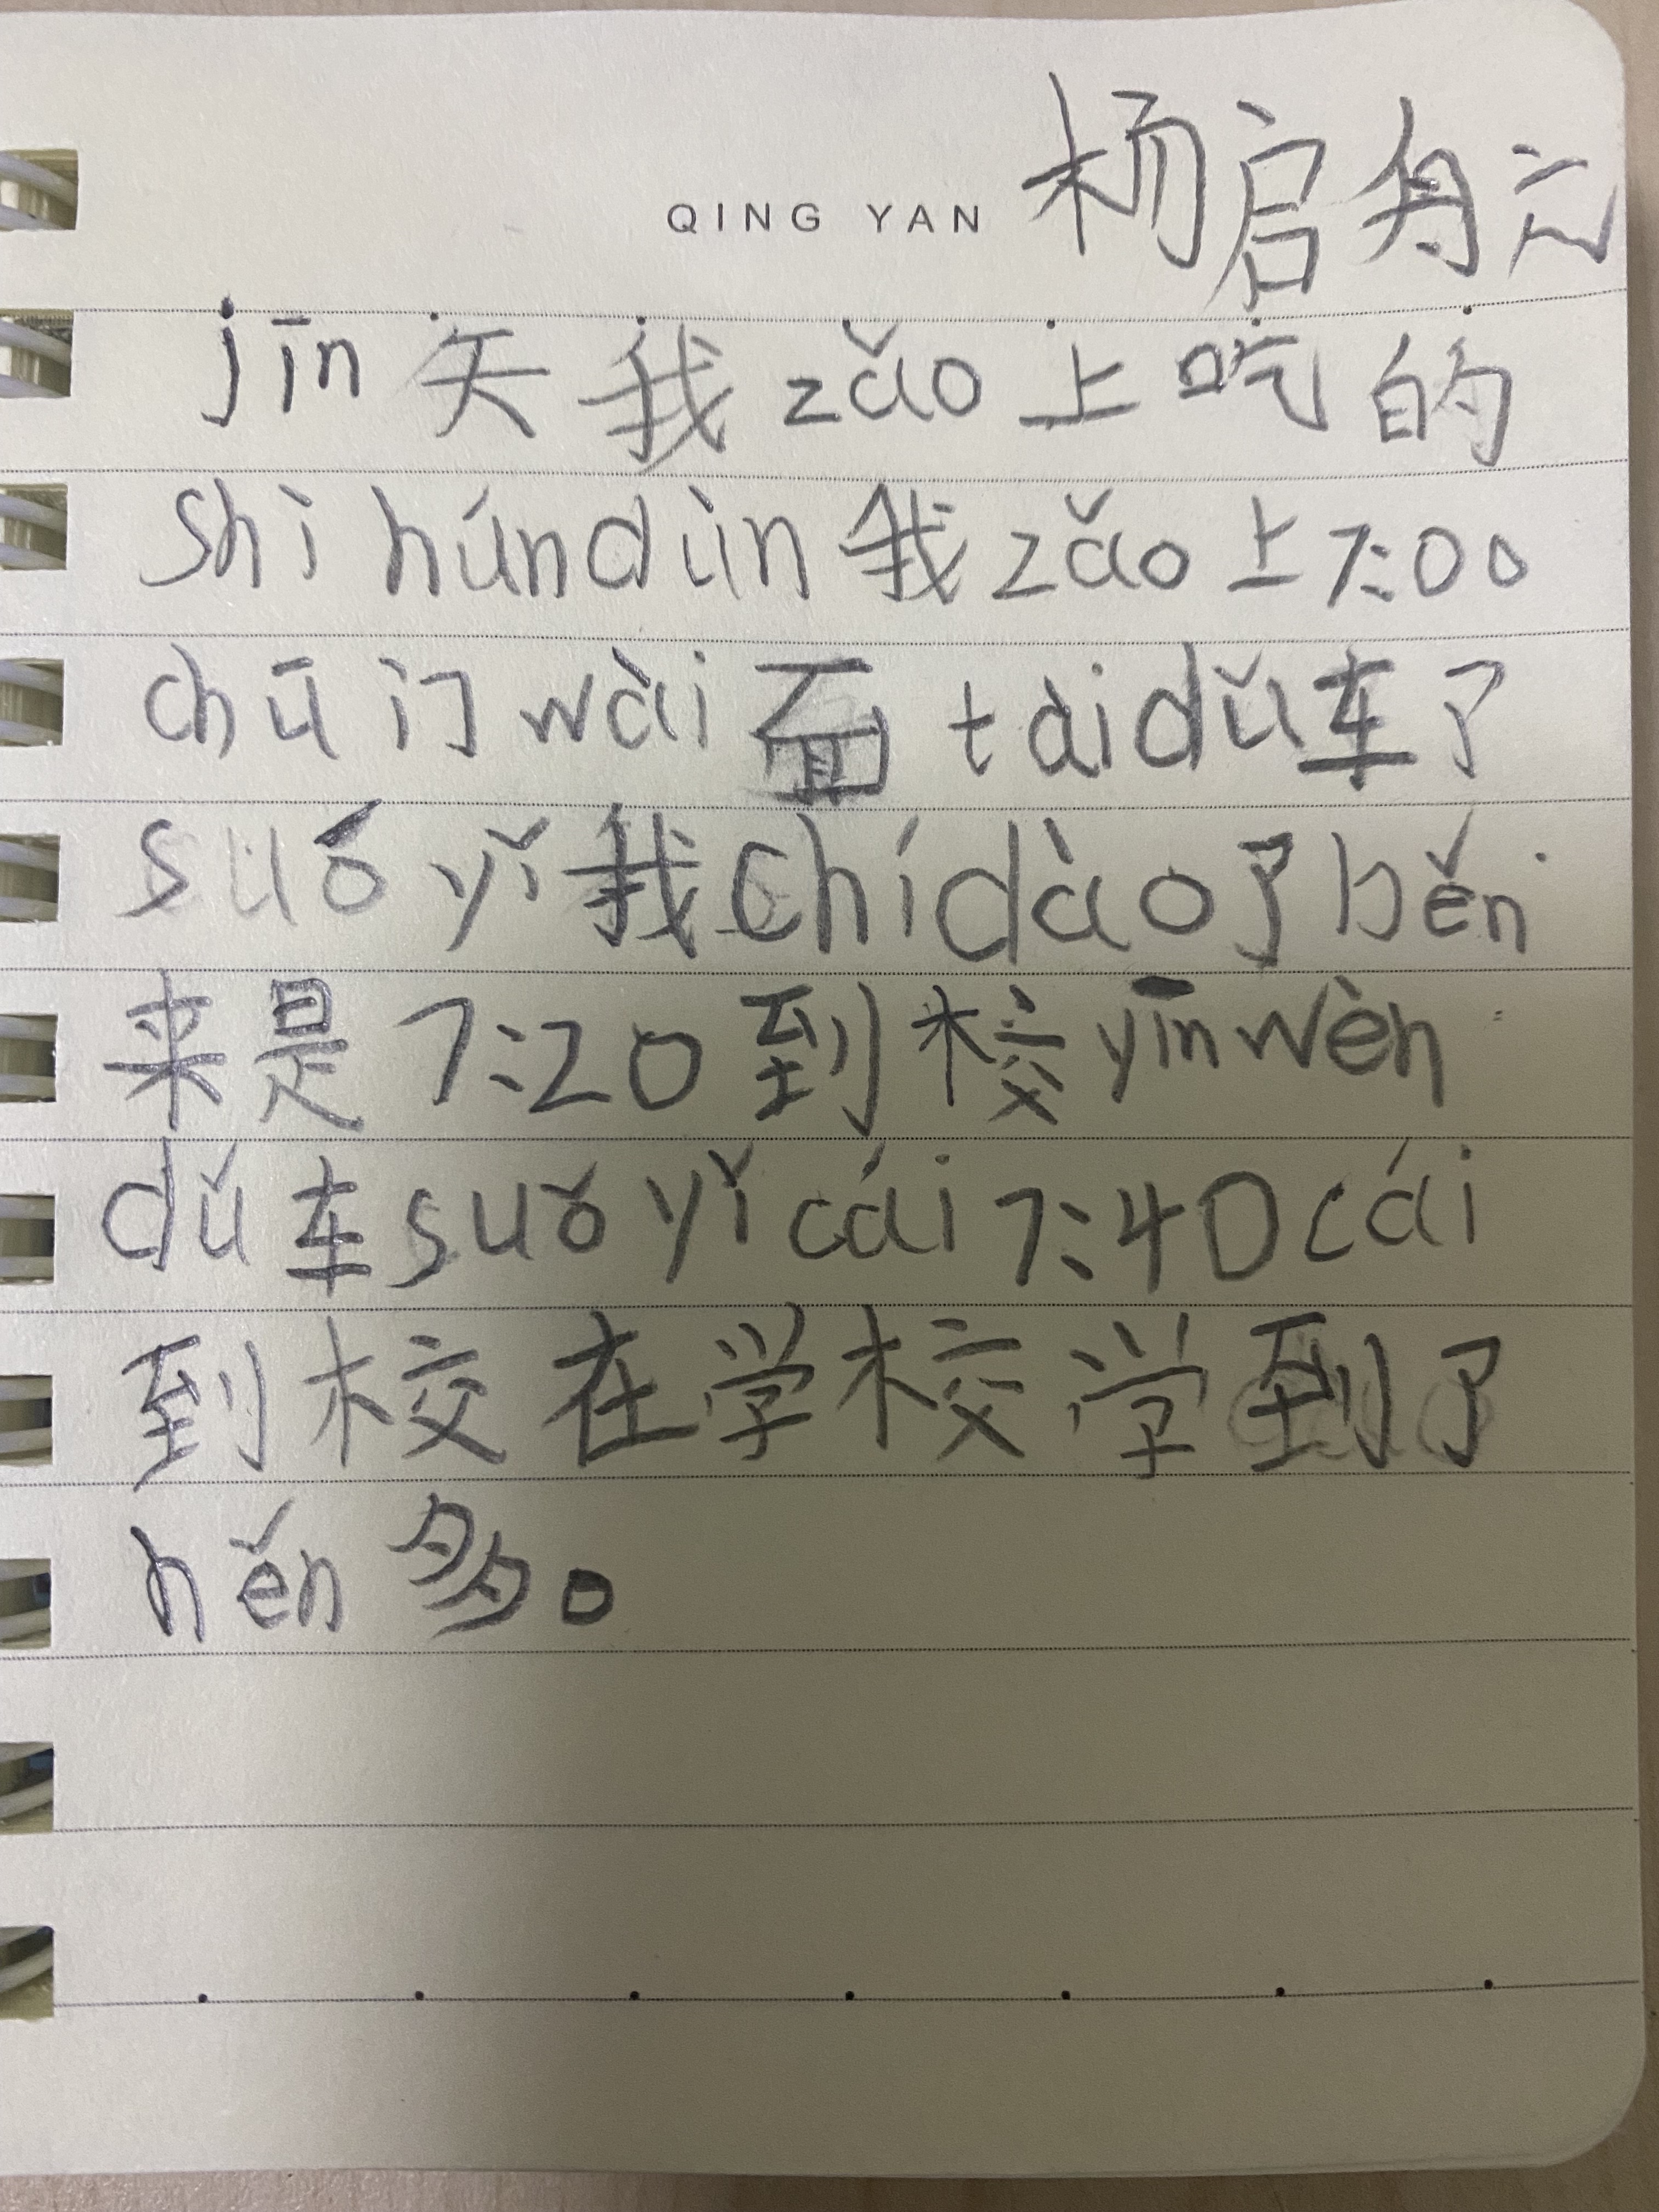 QING YAN 杨启舟元
jīn 天我 zǎo 上吃的
shì húndùn 我 zǎo 上 7:00
chū 门 wài 面 tài dǔ 车了
suǒ yǐ 我 chídào 了 běn
来是 7:20 到校 yīn wèn
dǔ 车 suǒ yǐ cái 7:40 cái
到校在学校学到了
hěn 多。